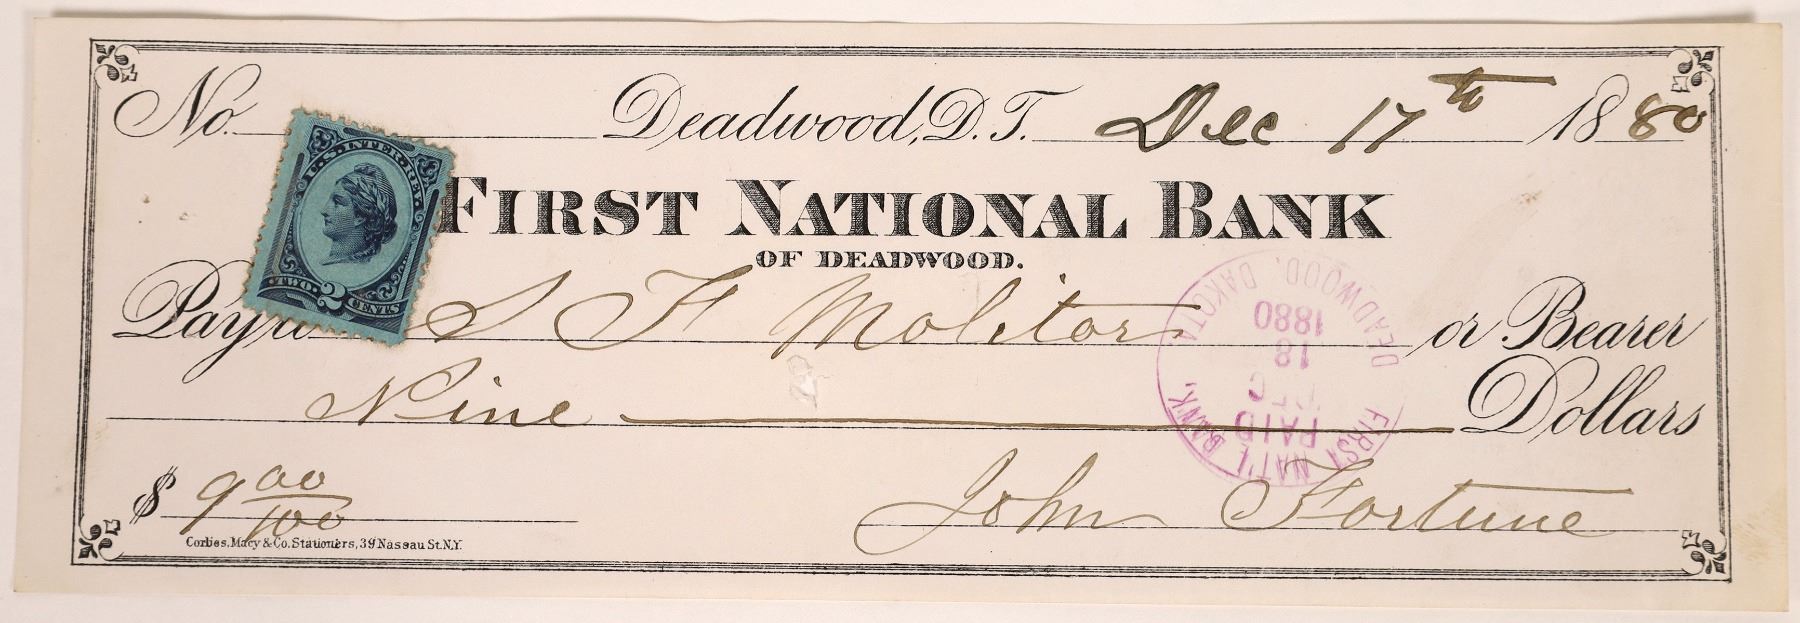 No. Deadwood, D.T. Dec 17th 1880
U.S. INTER. REV.
TWO 2 CENTS
FIRST NATIONAL BANK
OF DEADWOOD.
Pay to S F Molitor or Bearer
Nine Dollars
$ 9 00/100
John Fortune
Corbies, Macy & Co. Stationers, 39 Nassau St. N.Y.
FIRST NAT'L BANK, DEADWOOD, DAKOTA.
PAID
DEC
18
1880